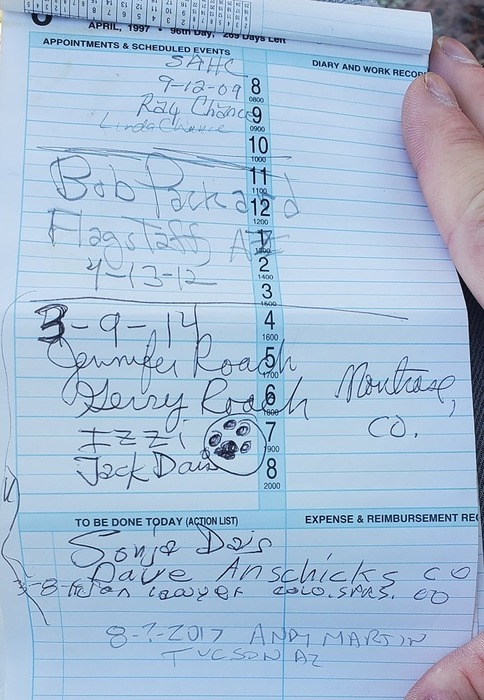 APRIL, 1997 • 96th Day, 269 Days Left
APPOINTMENTS & SCHEDULED EVENTS
DIARY AND WORK RECOR
SAHC
9-12-09
8
0800
Ray Chance
9
0900
Linda Chance
10
1000
11
1100
Bob Packard
12
1200
Flagstaff AZ
1
1300
4-13-12
2
1400
3
1500
3-9-14
4
1600
Jennifer Roach
5
1700
Gerry Roach
6
1800
Montrose,
CO.
IZZi
7
1900
Jack Dais
8
2000
TO BE DONE TODAY (ACTION LIST)
EXPENSE & REIMBURSEMENT REC
Sonja Dais
Dave Anschicks CO
Lawyer COLO. SPRS. CO
8-?-2017 ANDY MARTIN
TUCSON AZ